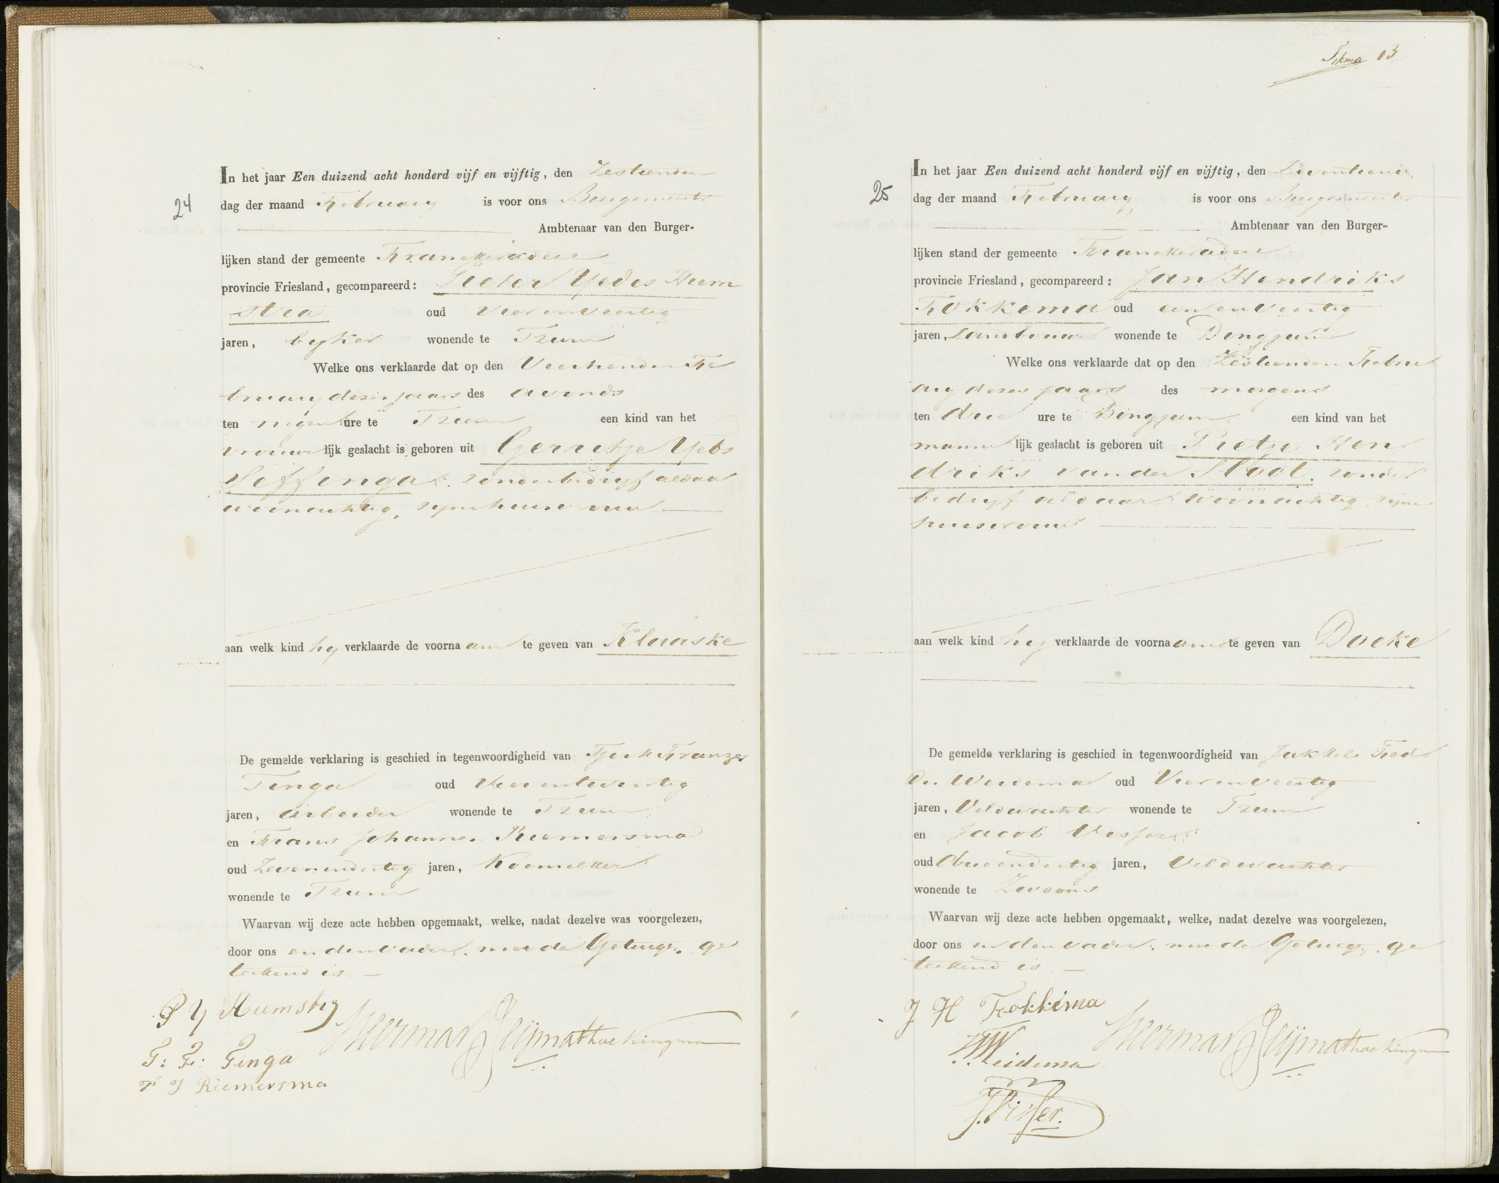 24
In het jaar Een duizend acht honderd vijf en vijftig, den Zestienden
dag der maand February is voor ons Burgemeester
Ambtenaar van den Burger-
lijken stand der gemeente Franekeradeel
provincie Friesland, gecompareerd: Pieter Yedes Heem
stra oud vier en veertig
jaren, byker wonende te Tzum
Welke ons verklaarde dat op den Veertienden Fe
bruary dezes jaars des avonds
ten negen ure te Tzum een kind van het
vrouwe lijk geslacht is geboren uit Gerritje Ypes
Siffinga, zonder bedryf aldaar
woonachtig, zyne huisvrouw
aan welk kind hy verklaarde de voornaam te geven van Klaaske
De gemelde verklaring is geschied in tegenwoordigheid van Tjerk Franzes
Tenga oud
jaren, arbeider wonende te Tzum
en Frans Johannes Riemersma
oud Zevenendertig jaren, Koemelker
wonende te Tzum
Waarvan wij deze acte hebben opgemaakt, welke, nadat dezelve was voorgelezen,
door ons en den vader, met de Getuigen, ge
teekend is
P Y Heemstra
T: F: Tenga
F J Riemersma
Tekma 13
25
In het jaar Een duizend acht honderd vijf en vijftig, den Zeventienden
dag der maand February is voor ons Burgemeester
Ambtenaar van den Burger-
lijken stand der gemeente Franekeradeel
provincie Friesland, gecompareerd: Jan Hendriks
Fokkema oud een en veertig
jaren, Landbouwer wonende te Dongjum
Welke ons verklaarde dat op den Zestienden Febru
ary dezes jaars des morgens
ten drie ure te Dongjum een kind van het
manne lijk geslacht is geboren uit Pietje Hen
driks van der Stool, zonder
bedryf aldaar woonachtig zyne
huisvrouw
aan welk kind hy verklaarde de voornaam te geven van Doeke
De gemelde verklaring is geschied in tegenwoordigheid van Fokke
Weidema oud Vier en veertig
jaren, Veldwachter wonende te Tzum
en Jacob Visser
oud jaren, Veldwachter
wonende te
Waarvan wij deze acte hebben opgemaakt, welke, nadat dezelve was voorgelezen,
door ons en den vader, met de Getuigen, ge
teekend is
J H Fokkema
Weidema
J. Visser.